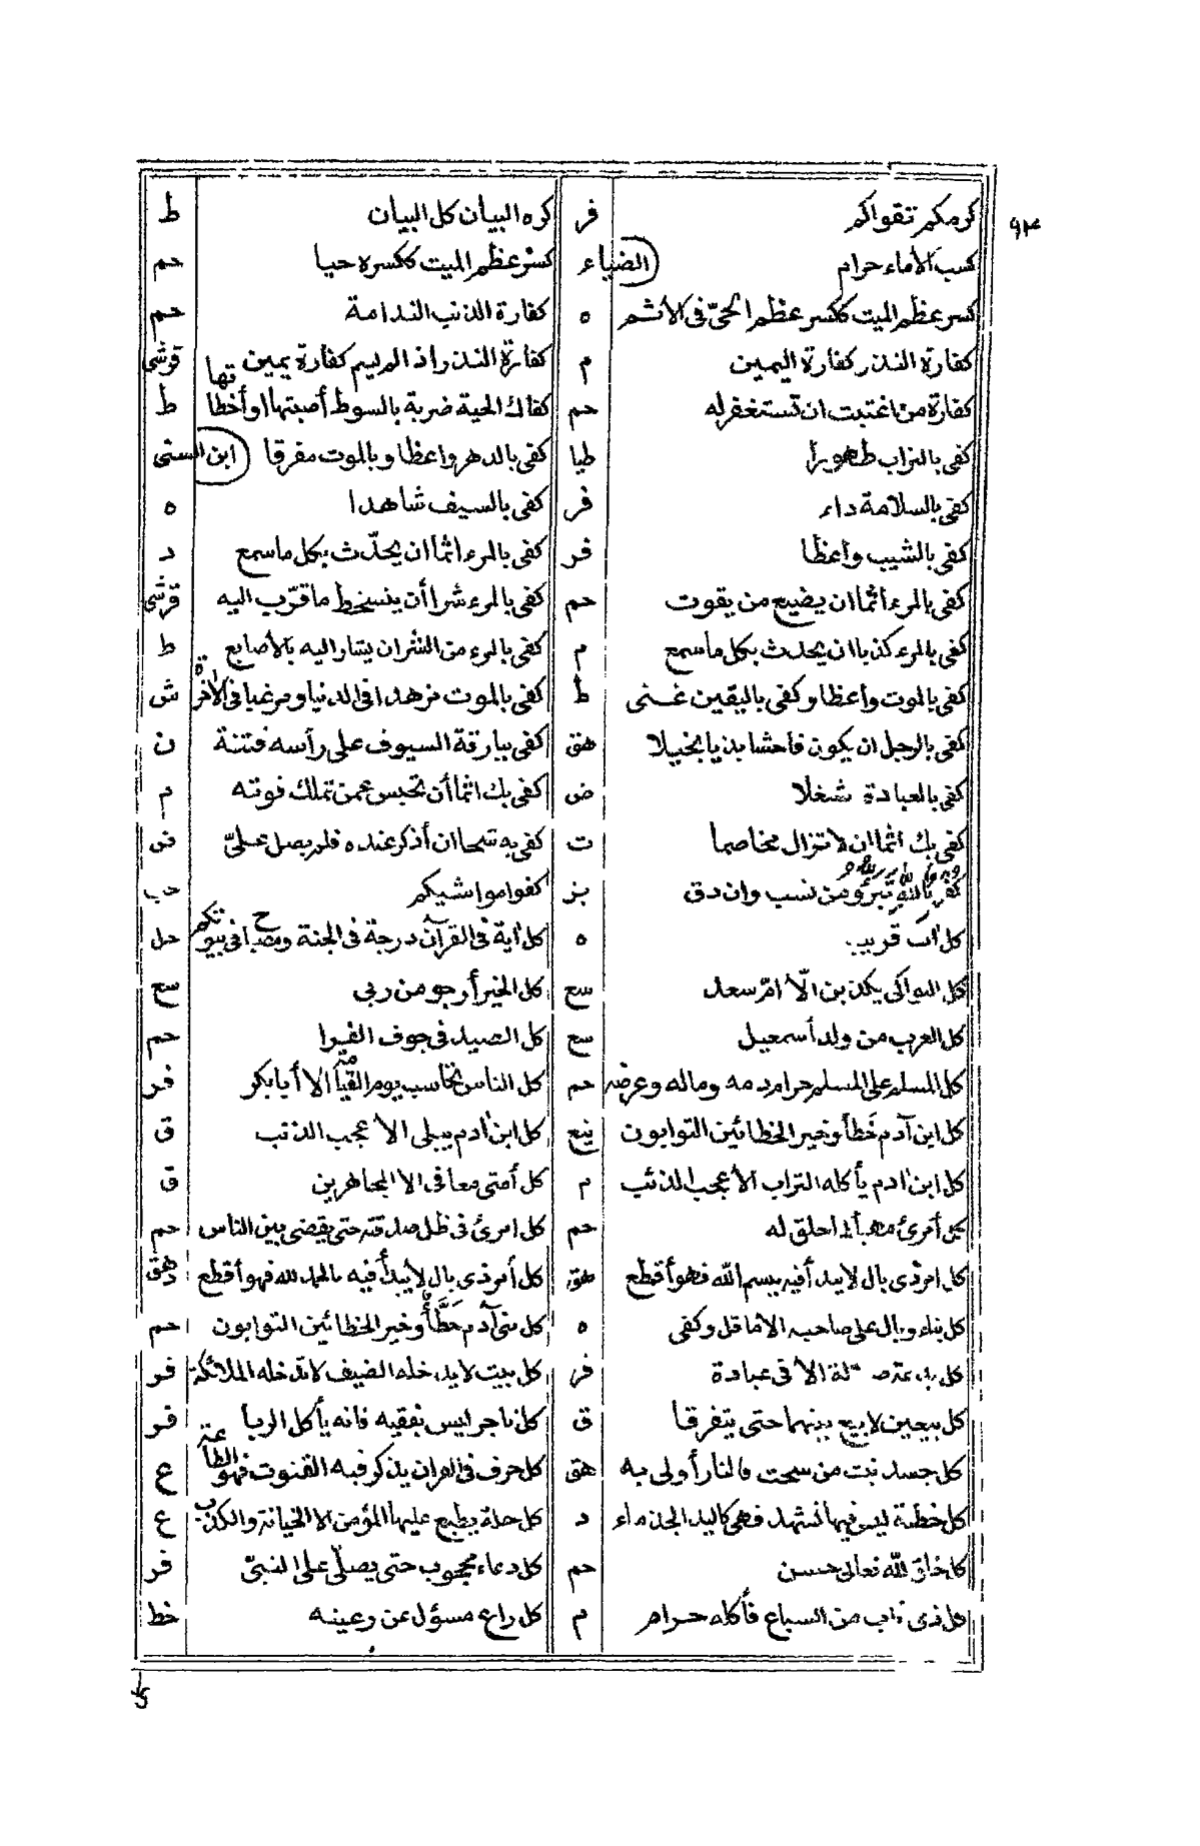 ٩٣
كرمكم تقواكم فر كره البيان كل البيان ط
كسب الأماء حرام الضياء كسر عظم الميت ككسره حيا حم
كسر عظم الميت ككسر عظم الحيّ فى الاثم ه كفارة الذنب الندامة حم
كفارة النذر كفارة اليمين م كفارة النذر اذا لم يسم كفارة يمين
كفارة من اغتبت ان تستغفر له حم كفاك الحية ضربة بالسوط أصبتها او أخطاتها ط
كفى بالتراب طهورا طيا كفى بالدهر واعظا وبالموت مفرقا ابن السنى
كفى بالسلامة داء فر كفى بالسيف شاهدا ه
كفى بالشيب واعظا فر كفى بالمرء اثما ان يحدّث بكل ما سمع د
كفى بالمرء اثما ان يضيع من يقوت حم كفى بالمرء شرا أن يتسخط ما قرّب اليه
كفى بالمرء كذبا ان يحدث بكل ما سمع م كفى بالمرء من الشر ان يشار اليه بالأصابع ط
كفى بالموت واعظا وكفى باليقين غنى ط كفى بالموت مزهدا فى الدنيا ومرغبا فى الأخرة ش
كفى بالرجل ان يكون فاحشا بذيا بخيلا هق كفى ببارقة السيوف على رأسه فتنة ن
كفى بالعبادة شغلا ض كفى بك اثما أن تحبس عمن تملك قوته م
كفى بك اثما ان لا تزال مخاصما ت كفى به شحا ان أذكر عنده فلم يصل علىّ ض
كفر بالله تبرؤ من نسب وان دق بز كفوا مواشيكم حب
كل آت قريب ه كل اية فى القرآن درجة فى الجنة ومصباح فى بيوتكم حل
كل البواكى يكذبن الّا امّ سعد سع كل الخير أرجو من ربى سع
كل العرب من ولد أسمعيل سع كل الصيد فى جوف الفرا حم
كل المسلم على المسلم حرام دمه وماله وعرضه حم كل الناس تحاسب يوم القيامة الا أبا بكر فر
كل ابن آدم خَطأ وخير الخطائين التوابون كل ابن ادم يبلى الا عجب الذنب ق
كل ابن ادم يأكله التراب الأ عجب الذنب م كل أمتى معافى الا المجاهرين ق
أمرئ لما خلق له حم كل امرئ فى ظل صدقته حتى يقضى بين الناس حم
كل امر ذى بال لا يبدأ فيه ببسم الله فهو أقطع هق كل أمر ذى بال لا يبدأ فيه بالحمد لله فهو أقطع دهق
كل بناء وبال على صاحبه الا ما قل وكفى ه كل بنى آدم خَطَّأ وخير الخطائين التوابون حم
كل الأ فى عبادة فر كل بيت لا يدخله الضيف لا تدخله الملائكة فر
كل بيعين لا بيع بينهما حتى يتفرقا ق كل تاجر ليس بفقيه فانه يأكل الربا فر
كل جسد نبت من سحت فالنار أولى به هق كل حرف فى القران يذكر فيه القنوت فهو الطاعة ع
كل خطبة ليس فيها تشهد فهى كاليد الجذماء د كل خلة يطبع عليها المؤمن الا الخيانة والكذب ع
كل خلق الله تعالى حسن حم كل دعاء محجوب حتى يصلّى على النبىّ فر
كل ذى ناب من السباع فأكله حرام م كل راع مسؤل عن رعيته خط
كل